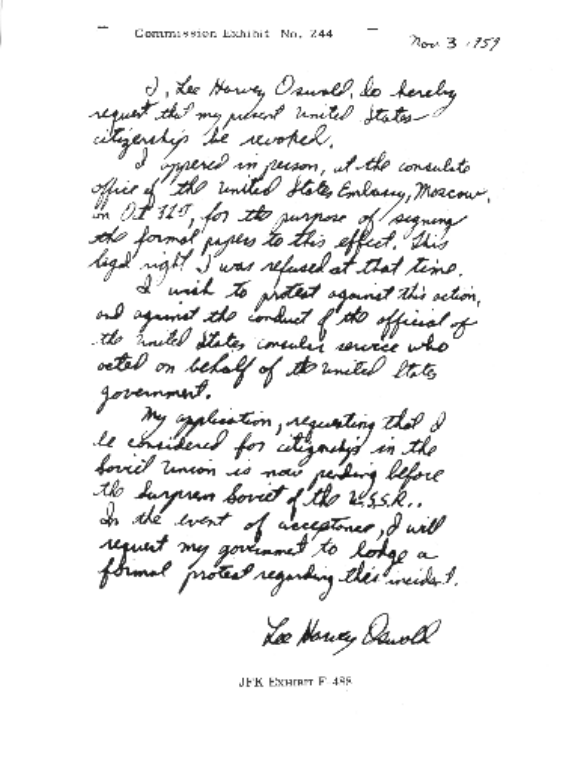 Commission Exhibit No. 244
Nov 3 1959
I, Lee Harvey Oswald, do hereby
request that my present united States
citizenship be revoked.
I appered in person, at the consulate
office of the united States Embassy, Moscow,
on Oct 31st, for the purpose of signing
the formal papers to this effect. This
legal right I was refused at that time.
I wish to protest against this action,
and against the conduct of the official of
the united States consular service who
acted on behalf of the united States
government.
My application, requesting that I
be considered for citizenship in the
Soviet Union is now pending before
the Surprem Soviet of the U.S.S.R..
In the event of acceptance, I will
request my government to lodge a
formal protest regarding this incident.
Lee Harvey Oswald
JFK EXHIBIT F-488